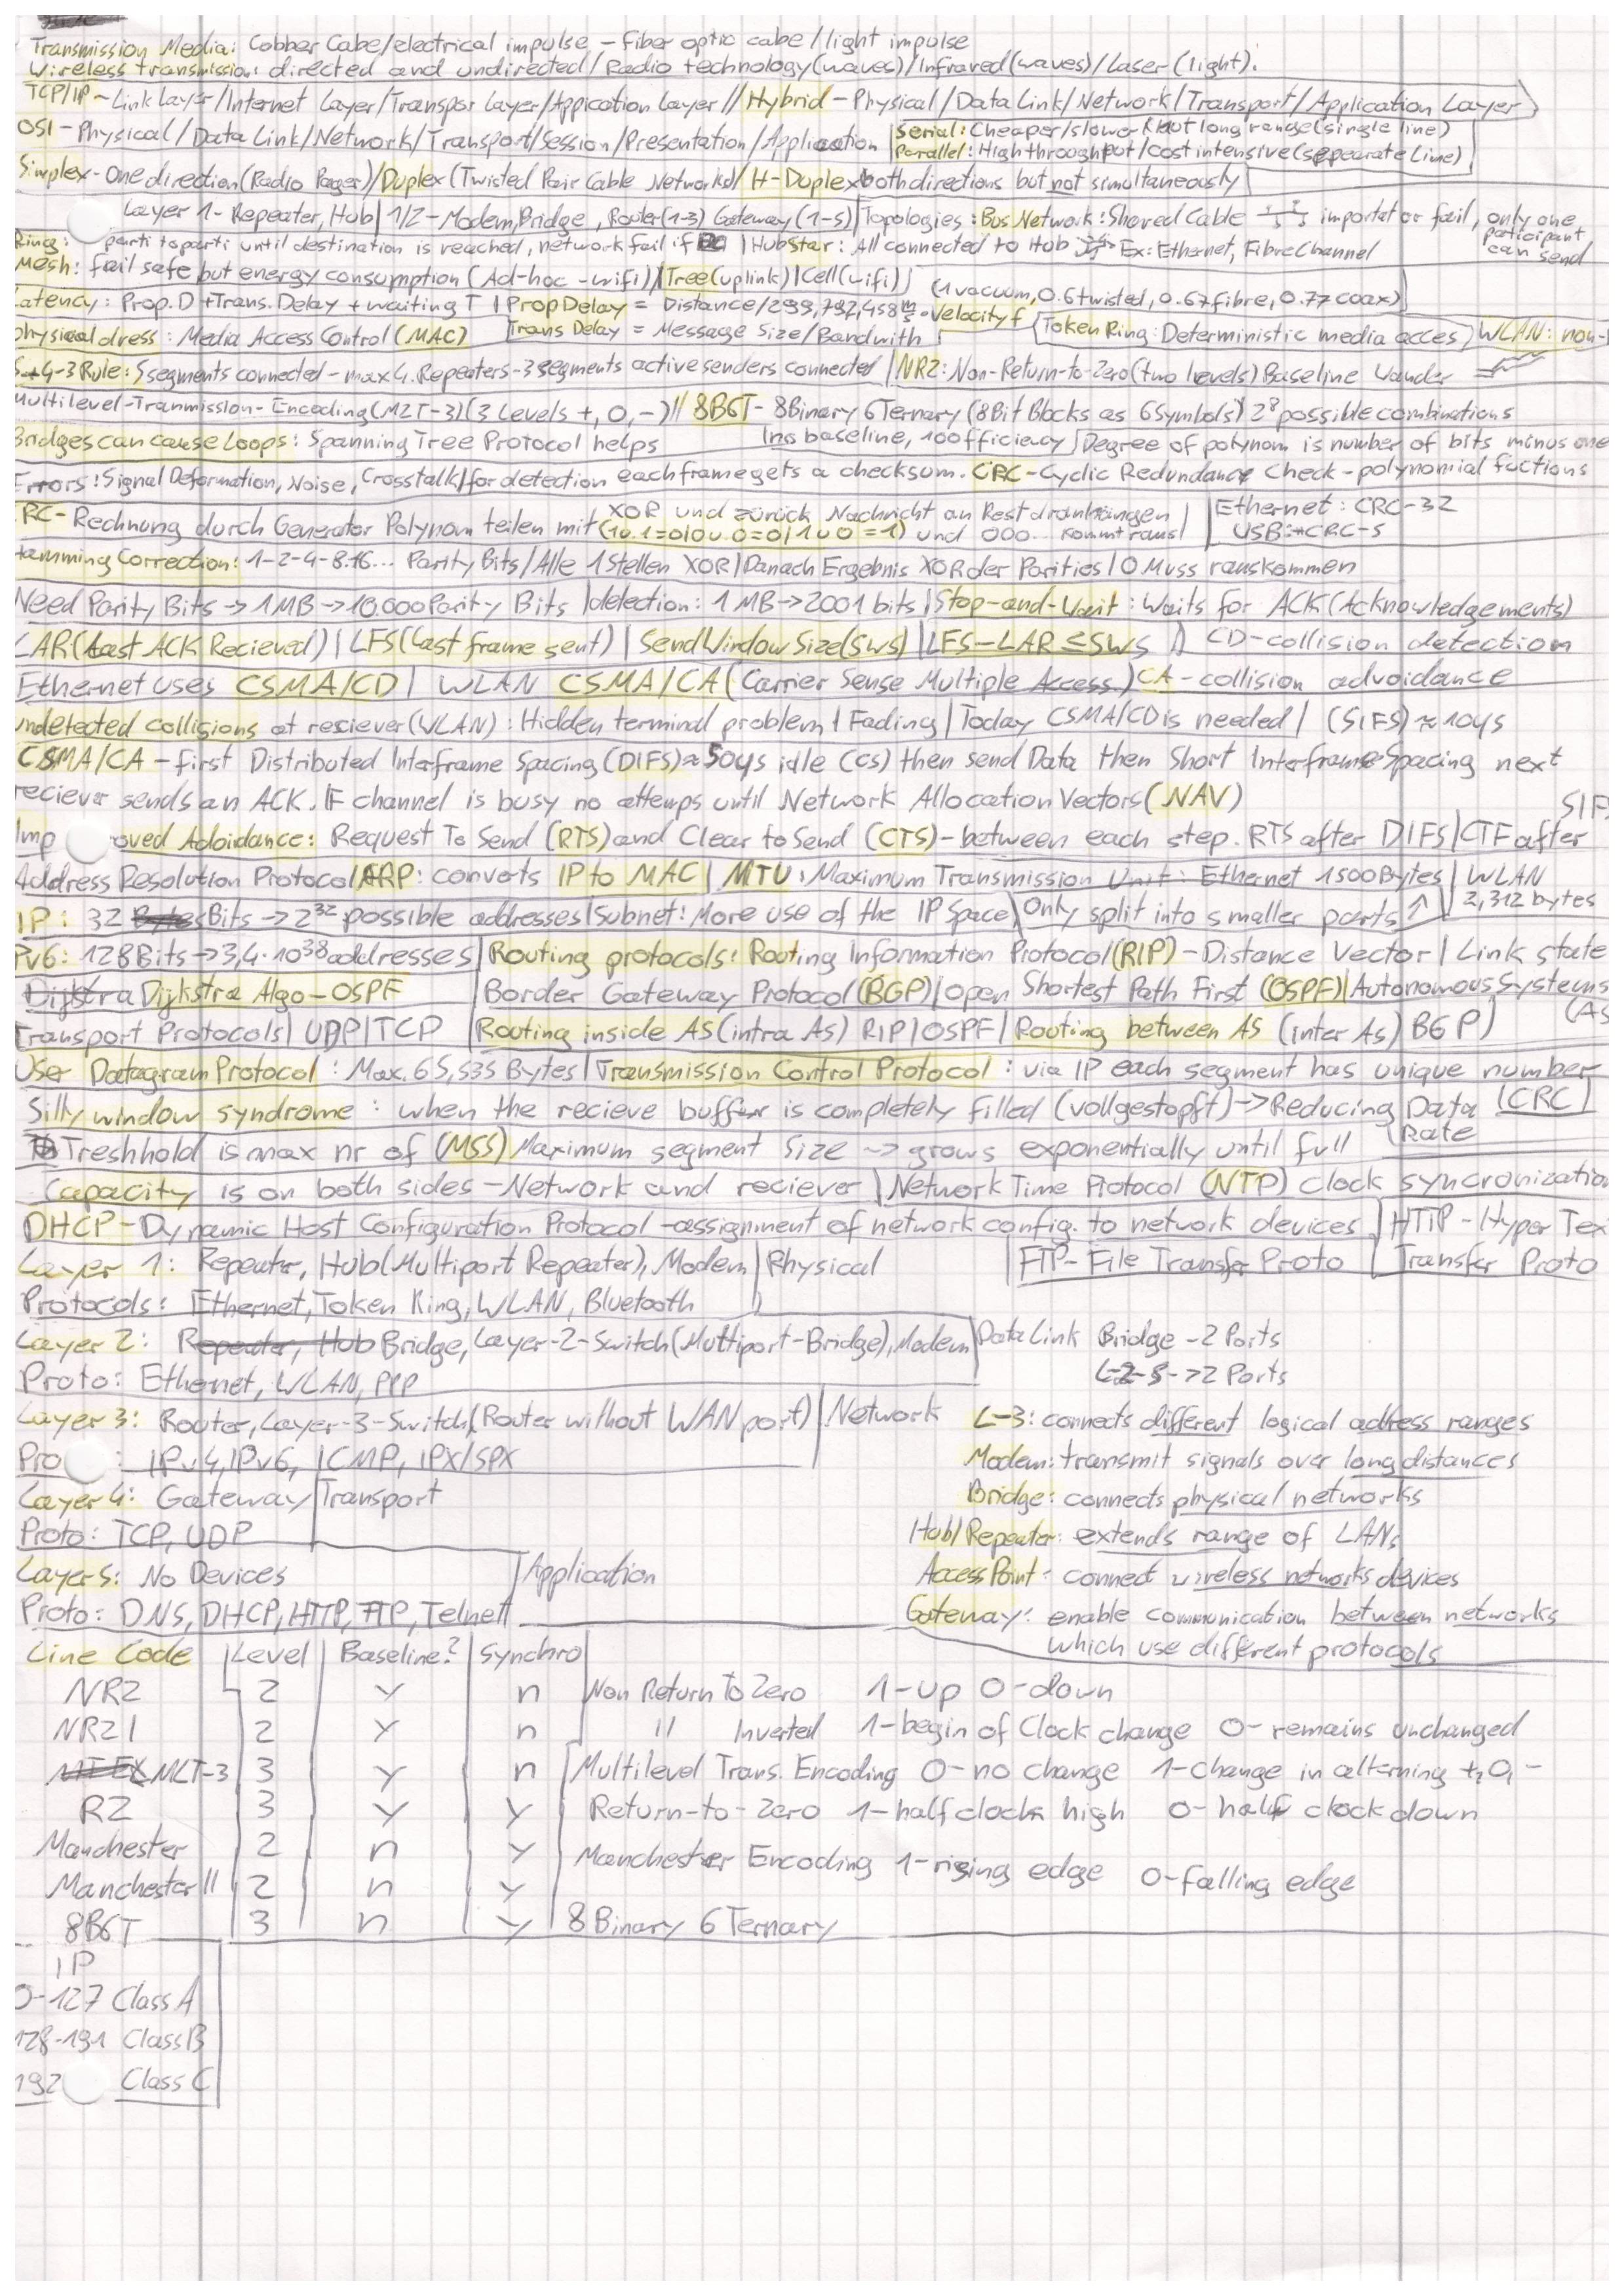 Transmission Media: Cobber Cabe/electrical impulse - Fiber optic cabe/light impulse
Wireless transmission: directed and undirected/Radio technology(waves)/Infrared(waves)/Laser(light).
TCP/IP - Link Layer/Internet Layer/Transpor Layer/Appication Layer // Hybrid - Physical/Data Link/Network/Transport/Application Layer
OSI - Physical/Data Link/Network/Transport/Session/Presentation/Application | Serial: Cheaper/slower but long range(single line)
Parallel: High throughput/cost intensive(sepearate Line)
Simplex - One direction(Radio Pager)/Duplex(Twisted Pair Cable Networks)/H-Duplex both directions but not simultaneously
Layer 1- Repeater, Hub | 1/2 - Modem, Bridge, Router(1-3) Gateway(1-5) | Topologies: Bus Network: Shared Cable importat or fail, only one participant can send
Ring: parti to parti until destination is reached, network fail if | Hub Star: All connected to Hub Ex: Ethernet, FibreChannel
Mesh: fail safe but energy consumption (Ad-hoc-wifi) | Tree(uplink) | Cell(wifi)
Latency: Prop.D + Trans. Delay + waiting T | Prop Delay = Distance/299,792,458 m/s · Velocity f (1 vacuum, 0.6 twisted, 0.67 fibre, 0.77 coax)
physical dress: Media Access Control(MAC) Trans Delay = Message Size/Bandwith | Token Ring: Deterministic media acces | WLAN: non-
5-4-3 Rule: 5 segments connected - max 4. Repeaters - 3 segments active senders connected | NRZ: Non-Return-to-Zero(two levels) Baseline Wander
Multilevel-Tranmission-Encoding(MLT-3)(3 Levels +, 0, -) // 8B6T - 8Binary 6Ternary (8Bit Blocks as 6Symbols) 2⁸ possible combinations
Bridges can cause Loops: Spanning Tree Protocol helps | no baseline, 100 efficiency | Degree of polynom is number of bits minus one
Errors: Signal Deformation, Noise, Crosstalk/for detection each frame gets a checksum. CRC - Cyclic Redundancy Check - polynomial fuctions
CRC - Rechnung durch Generator Polynom teilen mit XOR und zurück Nachricht an Rest dranhängen | Ethernet: CRC-32
(1 o. 1=0|0 o. 0=0|1 o 0=1) und 000... kommt raus | USB: CRC-5
Hamming Correction: 1-2-4-8.16... Parity Bits/Alle 1 Stellen XOR | Danach Ergebnis XOR der Parities | 0 Muss rauskommen
Need Parity Bits → 1MB → 10.000 Parity Bits | detection: 1 MB → 2001 bits | Stop-and-Wait: Waits for ACK(Acknowledgements)
LAR(Last ACK Recieved) | LFS(Last frame sent) | Send Window Size(SWS) | LFS - LAR ≤ SWS CD-collision detection
Ethernet uses CSMA/CD | WLAN CSMA/CA(Carrier Sense Multiple Access) CA - collision advoidance
undetected collisions at resiever(WLAN): Hidden terminal problem | Fading | Today CSMA/CD is needed | (SIFS) ≈ 10ys
CSMA/CA - first Distributed Interframe Spacing(DIFS) ≈ 50ys idle (cs) then send Data then Short Interframe Spacing next
reciever sends an ACK. IF channel is busy no attemps until Network Allocation Vectors(NAV)
Improved Adoidance: Request To Send (RTS) and Clear to Send (CTS) - between each step. RTS after DIFS | CTF after SIF
Address Resolution Protocol/ARP: converts IP to MAC | MTU: Maximum Transmission Unit: Ethernet 1500Bytes | WLAN 2,312 bytes
IP: 32 Bits → 2³² possible addresses | Subnet: More use of the IP Space | Only split into smaller parts ↑
Pv6: 128Bits → 3,4·10³⁸ addresses | Routing protocols: Routing Information Protocol(RIP) - Distance Vector | Link state
Dijkstra Dijkstra Algo - OSPF | Border Gateway Protocol(BGP) | open Shortest Path First (OSPF) | Autonomous Systems (As
Transport Protocols | UDP | TCP | Routing inside AS(intra As) RIP | OSPF | Routing between AS (inter As) BGP
User Datagram Protocol: Max. 65,535 Bytes | Transmission Control Protocol: via IP each segment has unique number
Silly window syndrome: when the recieve buffer is completely filled (vollgestopft) → Reducing Data Rate (CRC)
Treshhold is max nr of (MSS) Maximum segment Size → grows exponentially until full
Capacity is on both sides - Network and reciever | Network Time Protocol (NTP) clock syncronizatio
DHCP - Dynamic Host Configuration Protocol - assignment of network config. to network devices | HTTP - Hyper Tex
Transfer Proto
Layer 1: Repeater, Hub(Multiport Repeater), Modem | Physical | FTP - File Transfer Proto
Protocols: Ethernet, Token Ring, WLAN, Bluetooth
Layer 2: Repeater, Hub Bridge, Layer-2-Switch(Multiport-Bridge), Modem | Data Link Bridge - 2 Ports
L-2-S - >2 Ports
Proto: Ethernet, WLAN, PPP
Layer 3: Router, Layer-3-Switch(Router without WAN port) | Network L-3: connects different logical address ranges
Pro : IPv4, IPv6, ICMP, IPX/SPX Modem: transmit signals over long distances
Layer 4: Gateway | Transport Bridge: connects physical networks
Proto: TCP, UDP Hub/Repeater: extends range of LANs
Layer 5: No Devices | Application Access Point: connect wireless networks devices
Proto: DNS, DHCP, HTTP, FTP, Telnet Gateway: enable communication between networks
which use different protocols
Line Code | Level | Baseline? | Synchro
NRZ 2 y n Non Return To Zero 1-up 0-down
NRZI 2 y n " Inverted 1-begin of Clock change 0-remains unchanged
MLT-3 3 y n Multilevel Trans. Encoding 0-no change 1-change in alterning +, 0, -
RZ 3 y y Return-to-Zero 1-half clock high 0-half clock down
Manchester 2 n y Manchester Encoding 1-rising edge 0-falling edge
Manchester II 2 n y
8B6T 3 n y 8 Binary 6 Ternary
IP
0-127 Class A
128-191 Class B
192 Class C